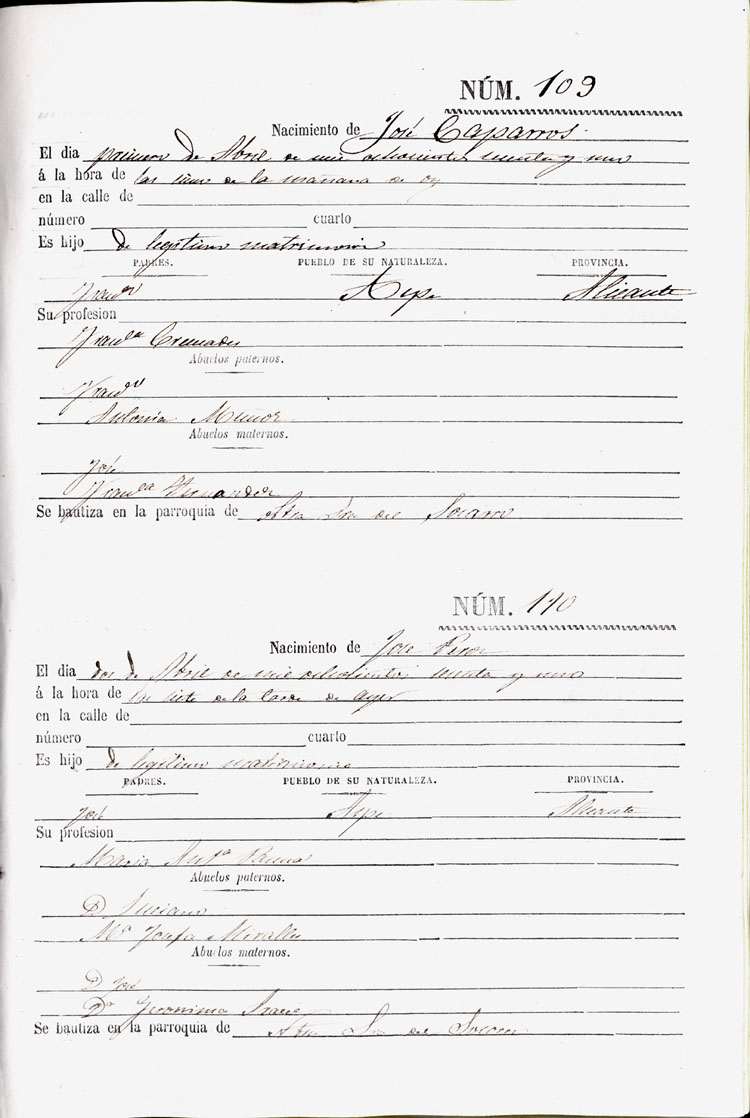 NÚM. 109
Nacimiento de José Caparros.
El dia primero de Abril de mil ochocientos y uno
á la hora de las de la mañana de oy
en la calle de
número cuarto
Es hijo de legitimo matrimonio
PADRES. PUEBLO DE SU NATURALEZA. PROVINCIA.
Franco Aspe Alicante
Su profesion
Franca Cremades
Abuelos paternos.
Franco
Antonia Muñoz
Abuelos maternos.
José
Franca Hernandez
Se bautiza en la parroquia de Ntra Sra del Socorro
NÚM. 110
Nacimiento de Jose
El dia dos de Abril de mil ochocientos y uno
á la hora de las siete de la tarde de ayer
en la calle de
número cuarto
Es hijo de legitimo matrimonio
PADRES. PUEBLO DE SU NATURALEZA. PROVINCIA.
José Aspe Alicante
Su profesion
Maria Anta
Abuelos paternos.
D Luciano
Ma Josefa Miralles
Abuelos maternos.
D José
Da Geronima
Se bautiza en la parroquia de Ntra Sra del Socorro